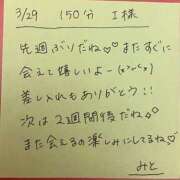 3/29 150分 I様
先週ぶりだね♡♡またすぐに
会えて嬉しいよー(x>ω<x)
差し入れもありがとう!!
次は2週間情だね♡
また会えるの楽しみにしてるね♡
みと